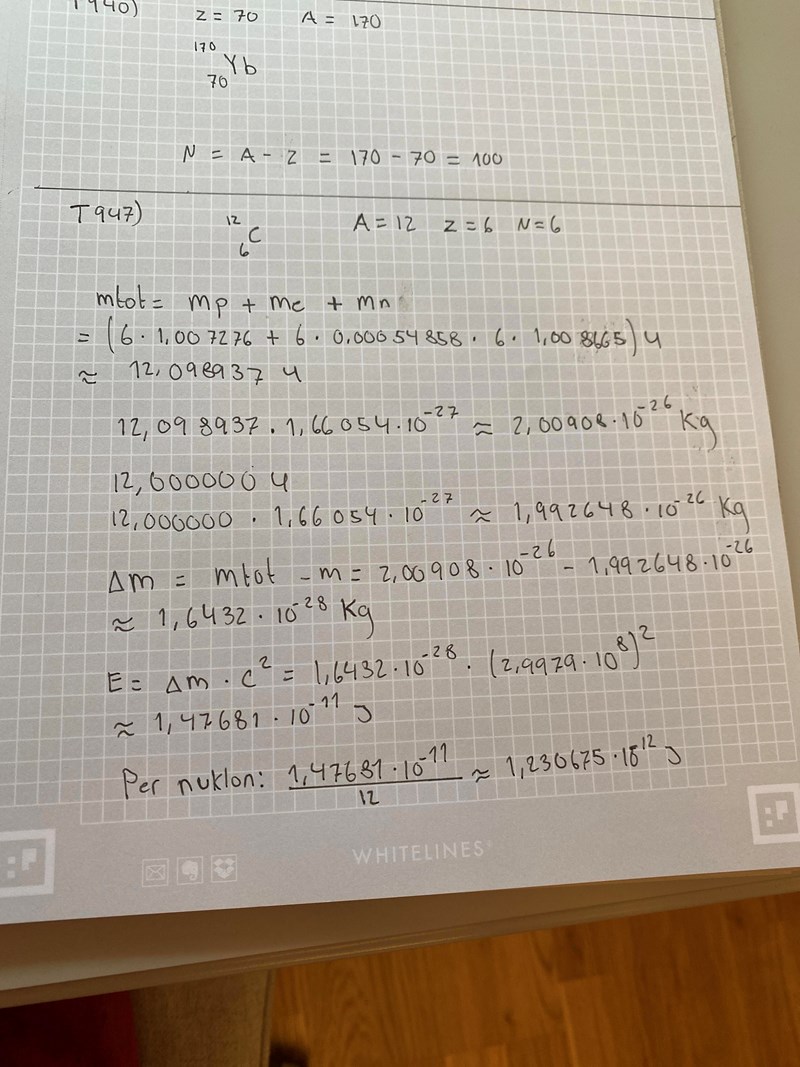 T940)
Z = 70 A = 170
¹⁷⁰₇₀Yb
N = A - Z = 170 - 70 = 100
T947) ¹²₆C A = 12 Z = 6 N = 6
mtot = mp + me + mn
= (6 · 1,007276 + 6 · 0,00054858 · 6 · 1,008665) u
≈ 12,098937 u
12,098937 · 1,66054 · 10⁻²⁷ ≈ 2,00908 · 10⁻²⁶ Kg
12,000000 u
12,000000 · 1,66054 · 10⁻²⁷ ≈ 1,992648 · 10⁻²⁶ Kg
Δm = mtot - m = 2,00908 · 10⁻²⁶ - 1,992648 · 10⁻²⁶
≈ 1,6432 · 10⁻²⁸ Kg
E = Δm · c² = 1,6432 · 10⁻²⁸ · (2,9979 · 10⁸)²
≈ 1,47681 · 10⁻¹¹ J
Per nuklon: 1,47681 · 10⁻¹¹ / 12 ≈ 1,230675 · 10⁻¹² J
WHITELINES®